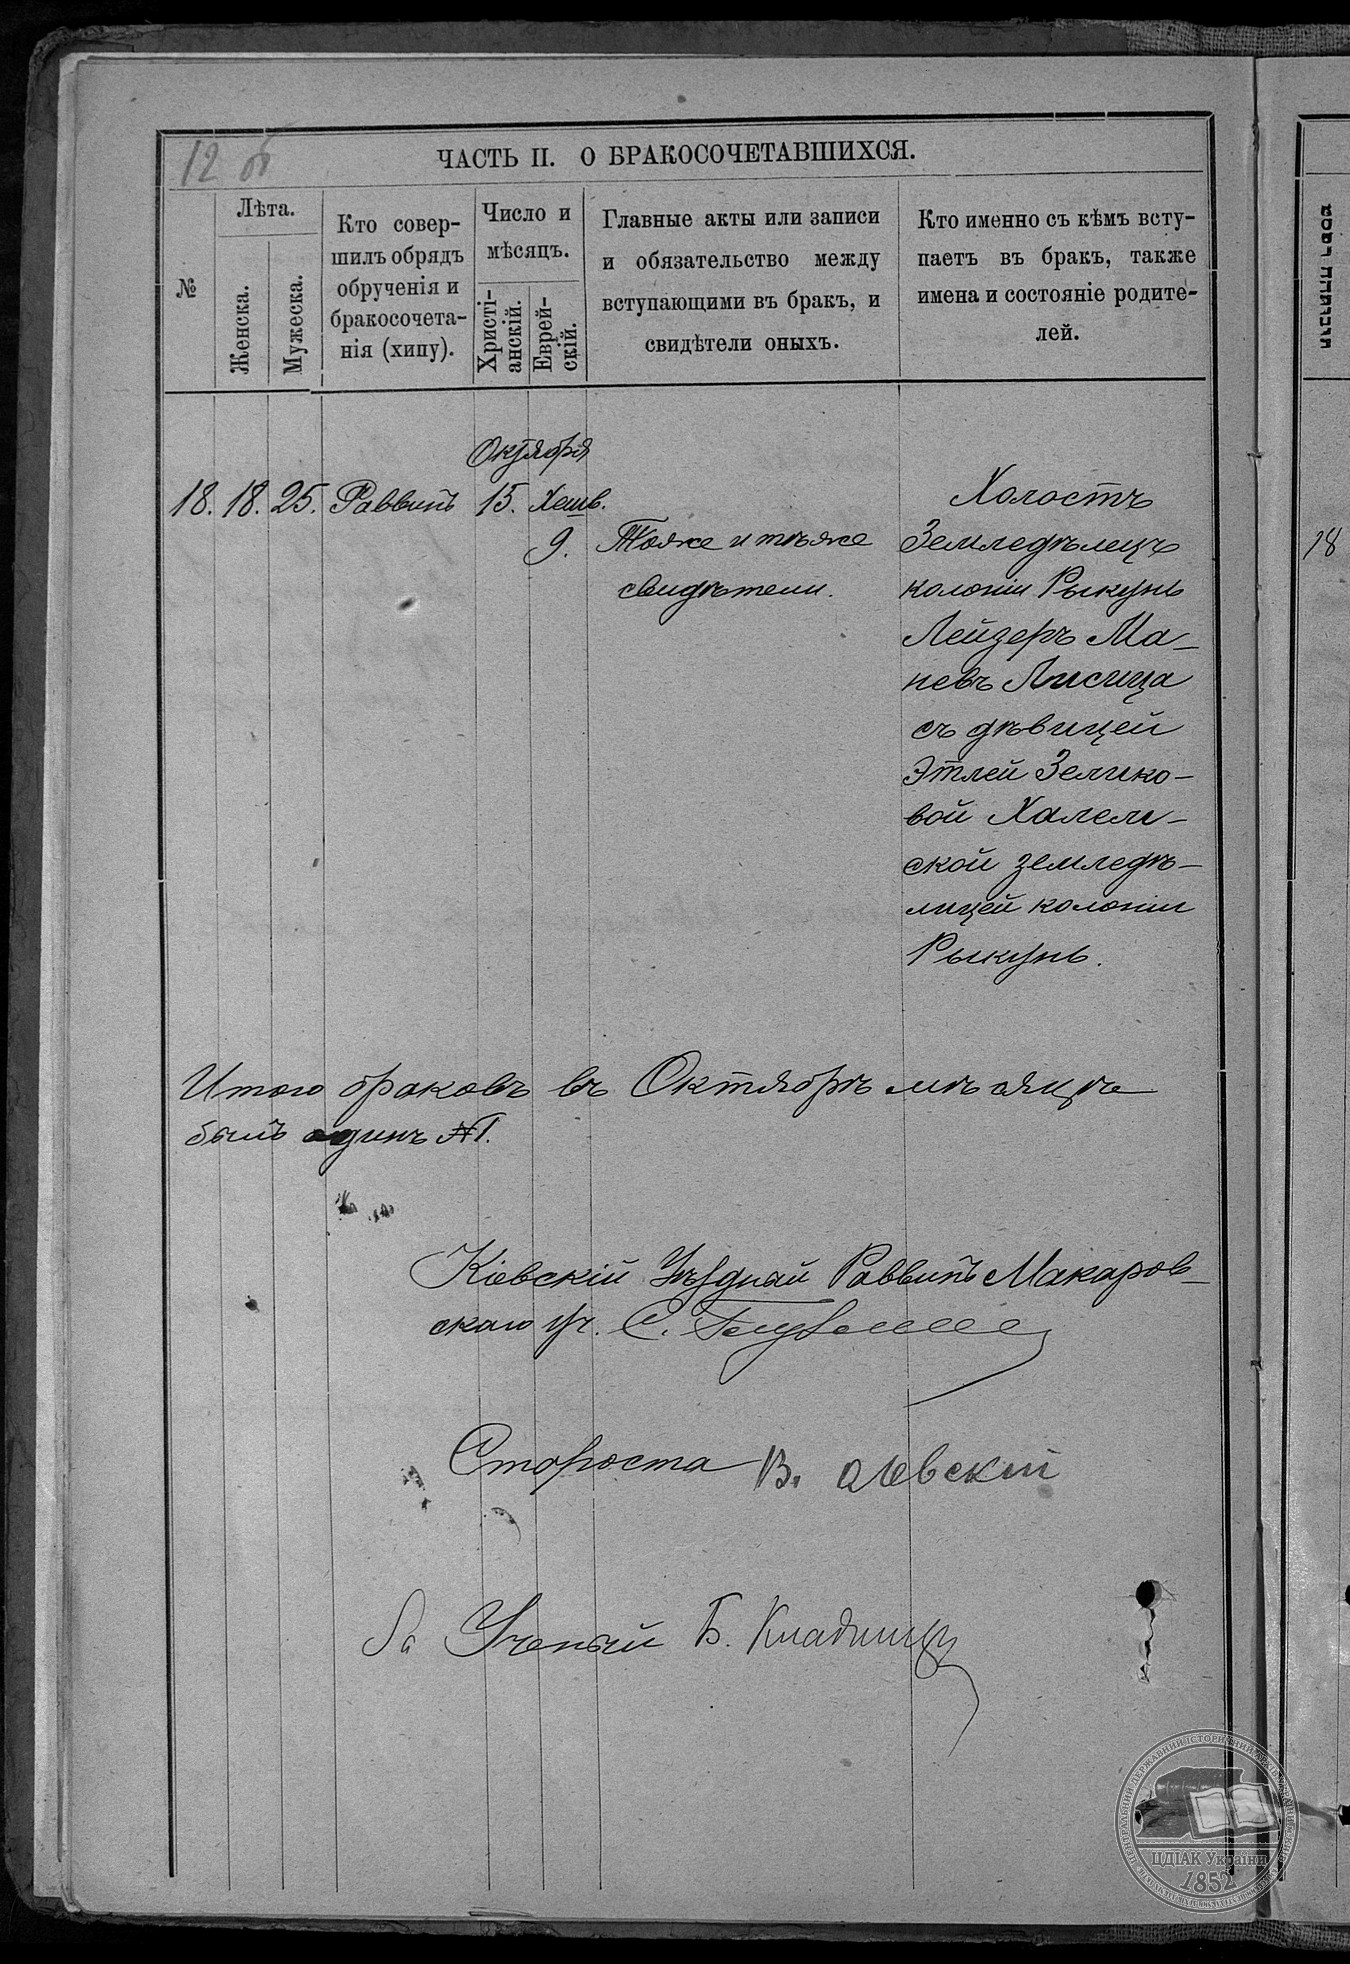 12 об
ЧАСТЬ II. О БРАКОСОЧЕТАВШИХСЯ.
№
Лѣта.
Женска.
Мужеска.
Кто совер-
шилъ обрядъ
обрученія и
бракосочета-
нія (хипу).
Число и
мѣсяцъ.
Христі-
анскій.
Еврей-
скій.
Главные акты или записи
и обязательство между
вступающими въ бракъ, и
свидѣтели оныхъ.
Кто именно съ кѣмъ всту-
паетъ въ бракъ, также
имена и состояніе родите-
лей.
Октября
18. 18. 25. Раввинъ 15. Хешв.
9.
Тоже и тѣже
свидѣтели.
Холостъ
Земледѣлецъ
колоніи Рыкунь
Лейзеръ Ма-
невъ Лисица
съ дѣвицей
Этлей Зелико-
вой Халем-
ской земледѣ-
лицей колоніи
Рыкунь.
18
Итого браковъ въ Октябрѣ мѣсяцѣ
былъ одинъ №1.
Кіевскій Уѣздный Раввинъ Макаров-
скаго уч. С.
Староста В.
За Ученый Б.
ЦЕНТРАЛЬНИЙ ДЕРЖАВНИЙ ІСТОРИЧНИЙ АРХІВ УКРАЇНИ
ЦДІАК України
1852